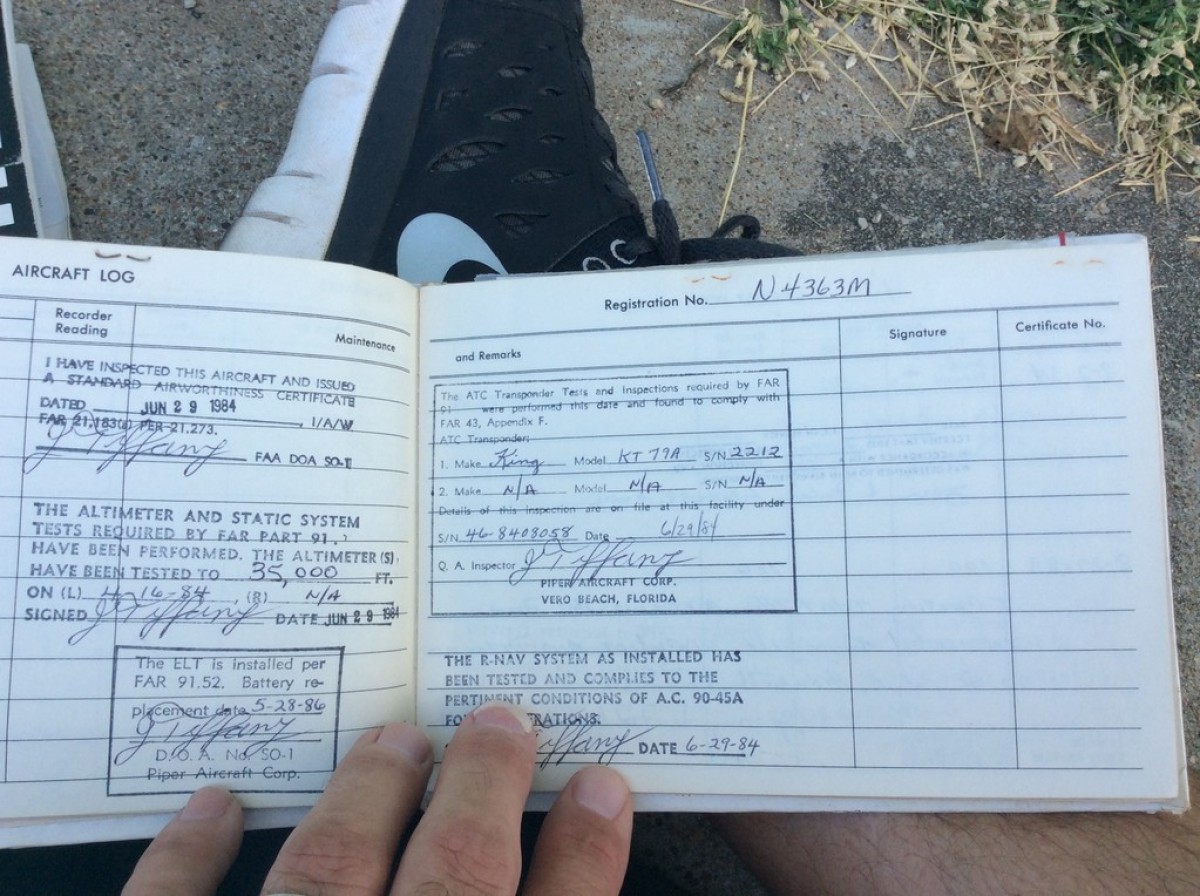 AIRCRAFT LOG
Recorder
Reading
Maintenance
I HAVE INSPECTED THIS AIRCRAFT AND ISSUED
A STANDARD AIRWORTHINESS CERTIFICATE
DATED JUN 29 1984 , I/A/W
FAR 21.183(a) PER 21.273.
J Tiffany FAA DOA SO-1
THE ALTIMETER AND STATIC SYSTEM
TESTS REQUIRED BY FAR PART 91.
HAVE BEEN PERFORMED. THE ALTIMETER(S)
HAVE BEEN TESTED TO 35,000 FT.
ON (L) 4-16-84 , (R) N/A
SIGNED J Tiffany DATE JUN 29 1984
The ELT is installed per
FAR 91.52. Battery re-
placement date 5-28-86
J Tiffany
D.O.A. No. SO-1
Piper Aircraft Corp.
Registration No. N4363M
and Remarks
Signature
Certificate No.
The ATC Transponder Tests and Inspections required by FAR
91 were performed this date and found to comply with
FAR 43, Appendix F.
ATC Transponder:
1. Make King Model KT 79A S/N 2212
2. Make N/A Model N/A S/N N/A
Details of this inspection are on file at this facility under
S/N 46-8408058 Date 6/29/84
Q. A. Inspector J Tiffany
PIPER AIRCRAFT CORP.
VERO BEACH, FLORIDA
THE R-NAV SYSTEM AS INSTALLED HAS
BEEN TESTED AND COMPLIES TO THE
PERTINENT CONDITIONS OF A.C. 90-45A
Tiffany DATE 6-29-84